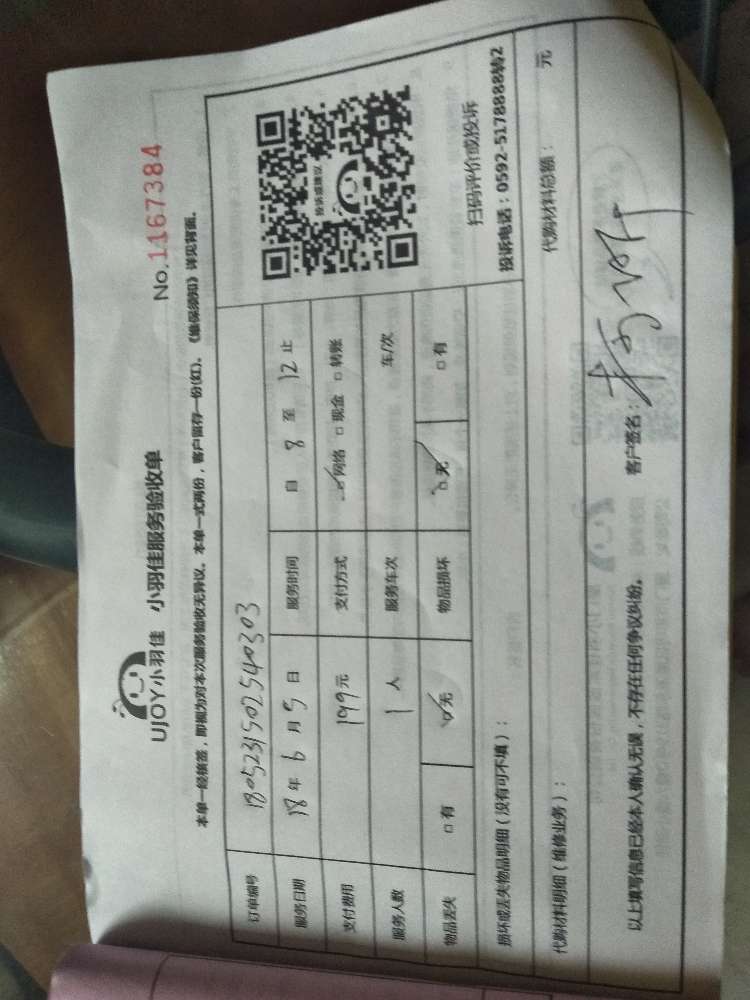 UJOY小羽佳 小羽佳服务验收单
No.1167384
本单一经核签，即视为对本次服务验收无异议。本单一式两份，客户留存一份(红)。《维保须知》详见背面。
订单编号 180523150254 0303
服务日期 18年6月5日 服务时间 自 8 至 12 止
支付费用 199元 支付方式 ☑网络 □现金 □转账
服务人数 1 人 服务车次 车/次
物品丢失 □有 ☑无 物品损坏 ☑无 □有
投诉或建议
扫码评价或投诉
投诉电话：0592-5178888转2
损坏或丢失物品明细（没有可不填）：
代购材料明细（维修业务）： 代购材料总额： 元
以上填写信息已经本人确认无误，不存在任何争议纠纷。 客户签名：